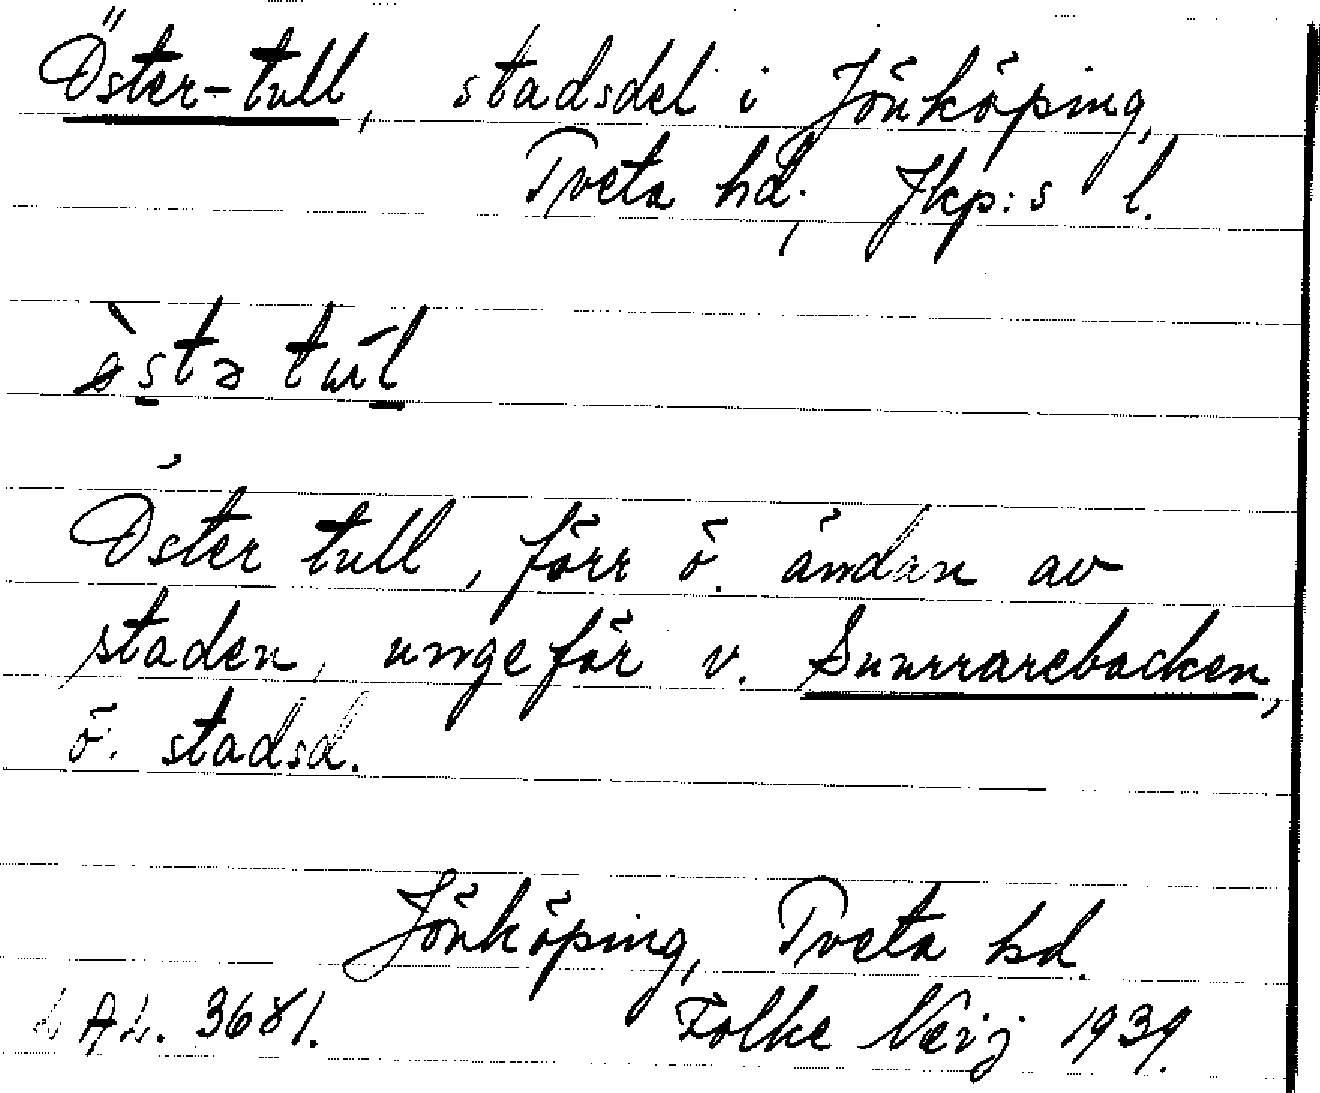 Öster-tull, stadsdel i Jönköping,
Tveta hd; Jkp:s l.
Öster tull, förr ö. ändan av
staden, ungeför v. Smurrarebacken,
ö. stadsd.
Jönköping, Tveta hd.
AL. 3681. Folke Neij 1939.